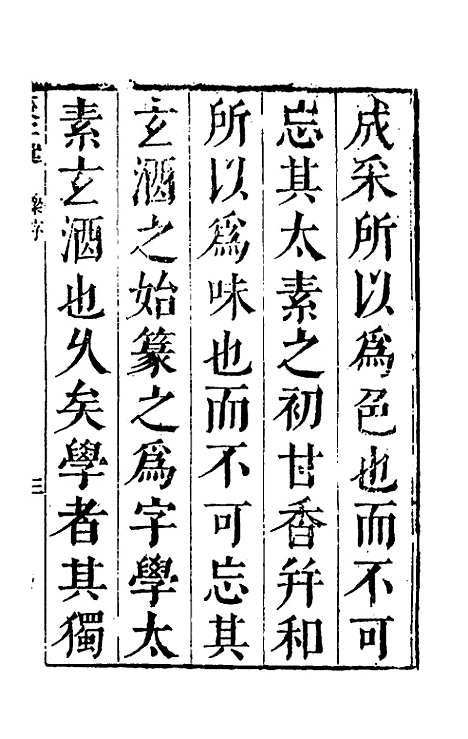 成采所以爲色也而不可
忘其太素之初甘香并和
所以爲味也而不可忘其
玄酒之始篆之爲字學太
素玄酒也久矣學者其獨
三